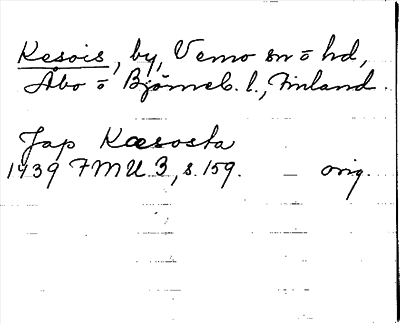 Kesois, by, Vemo sn o hd,
Åbo o Björneb. l., Finland.
Jap Kæsosta
1439 FMU 3, s. 159. orig.